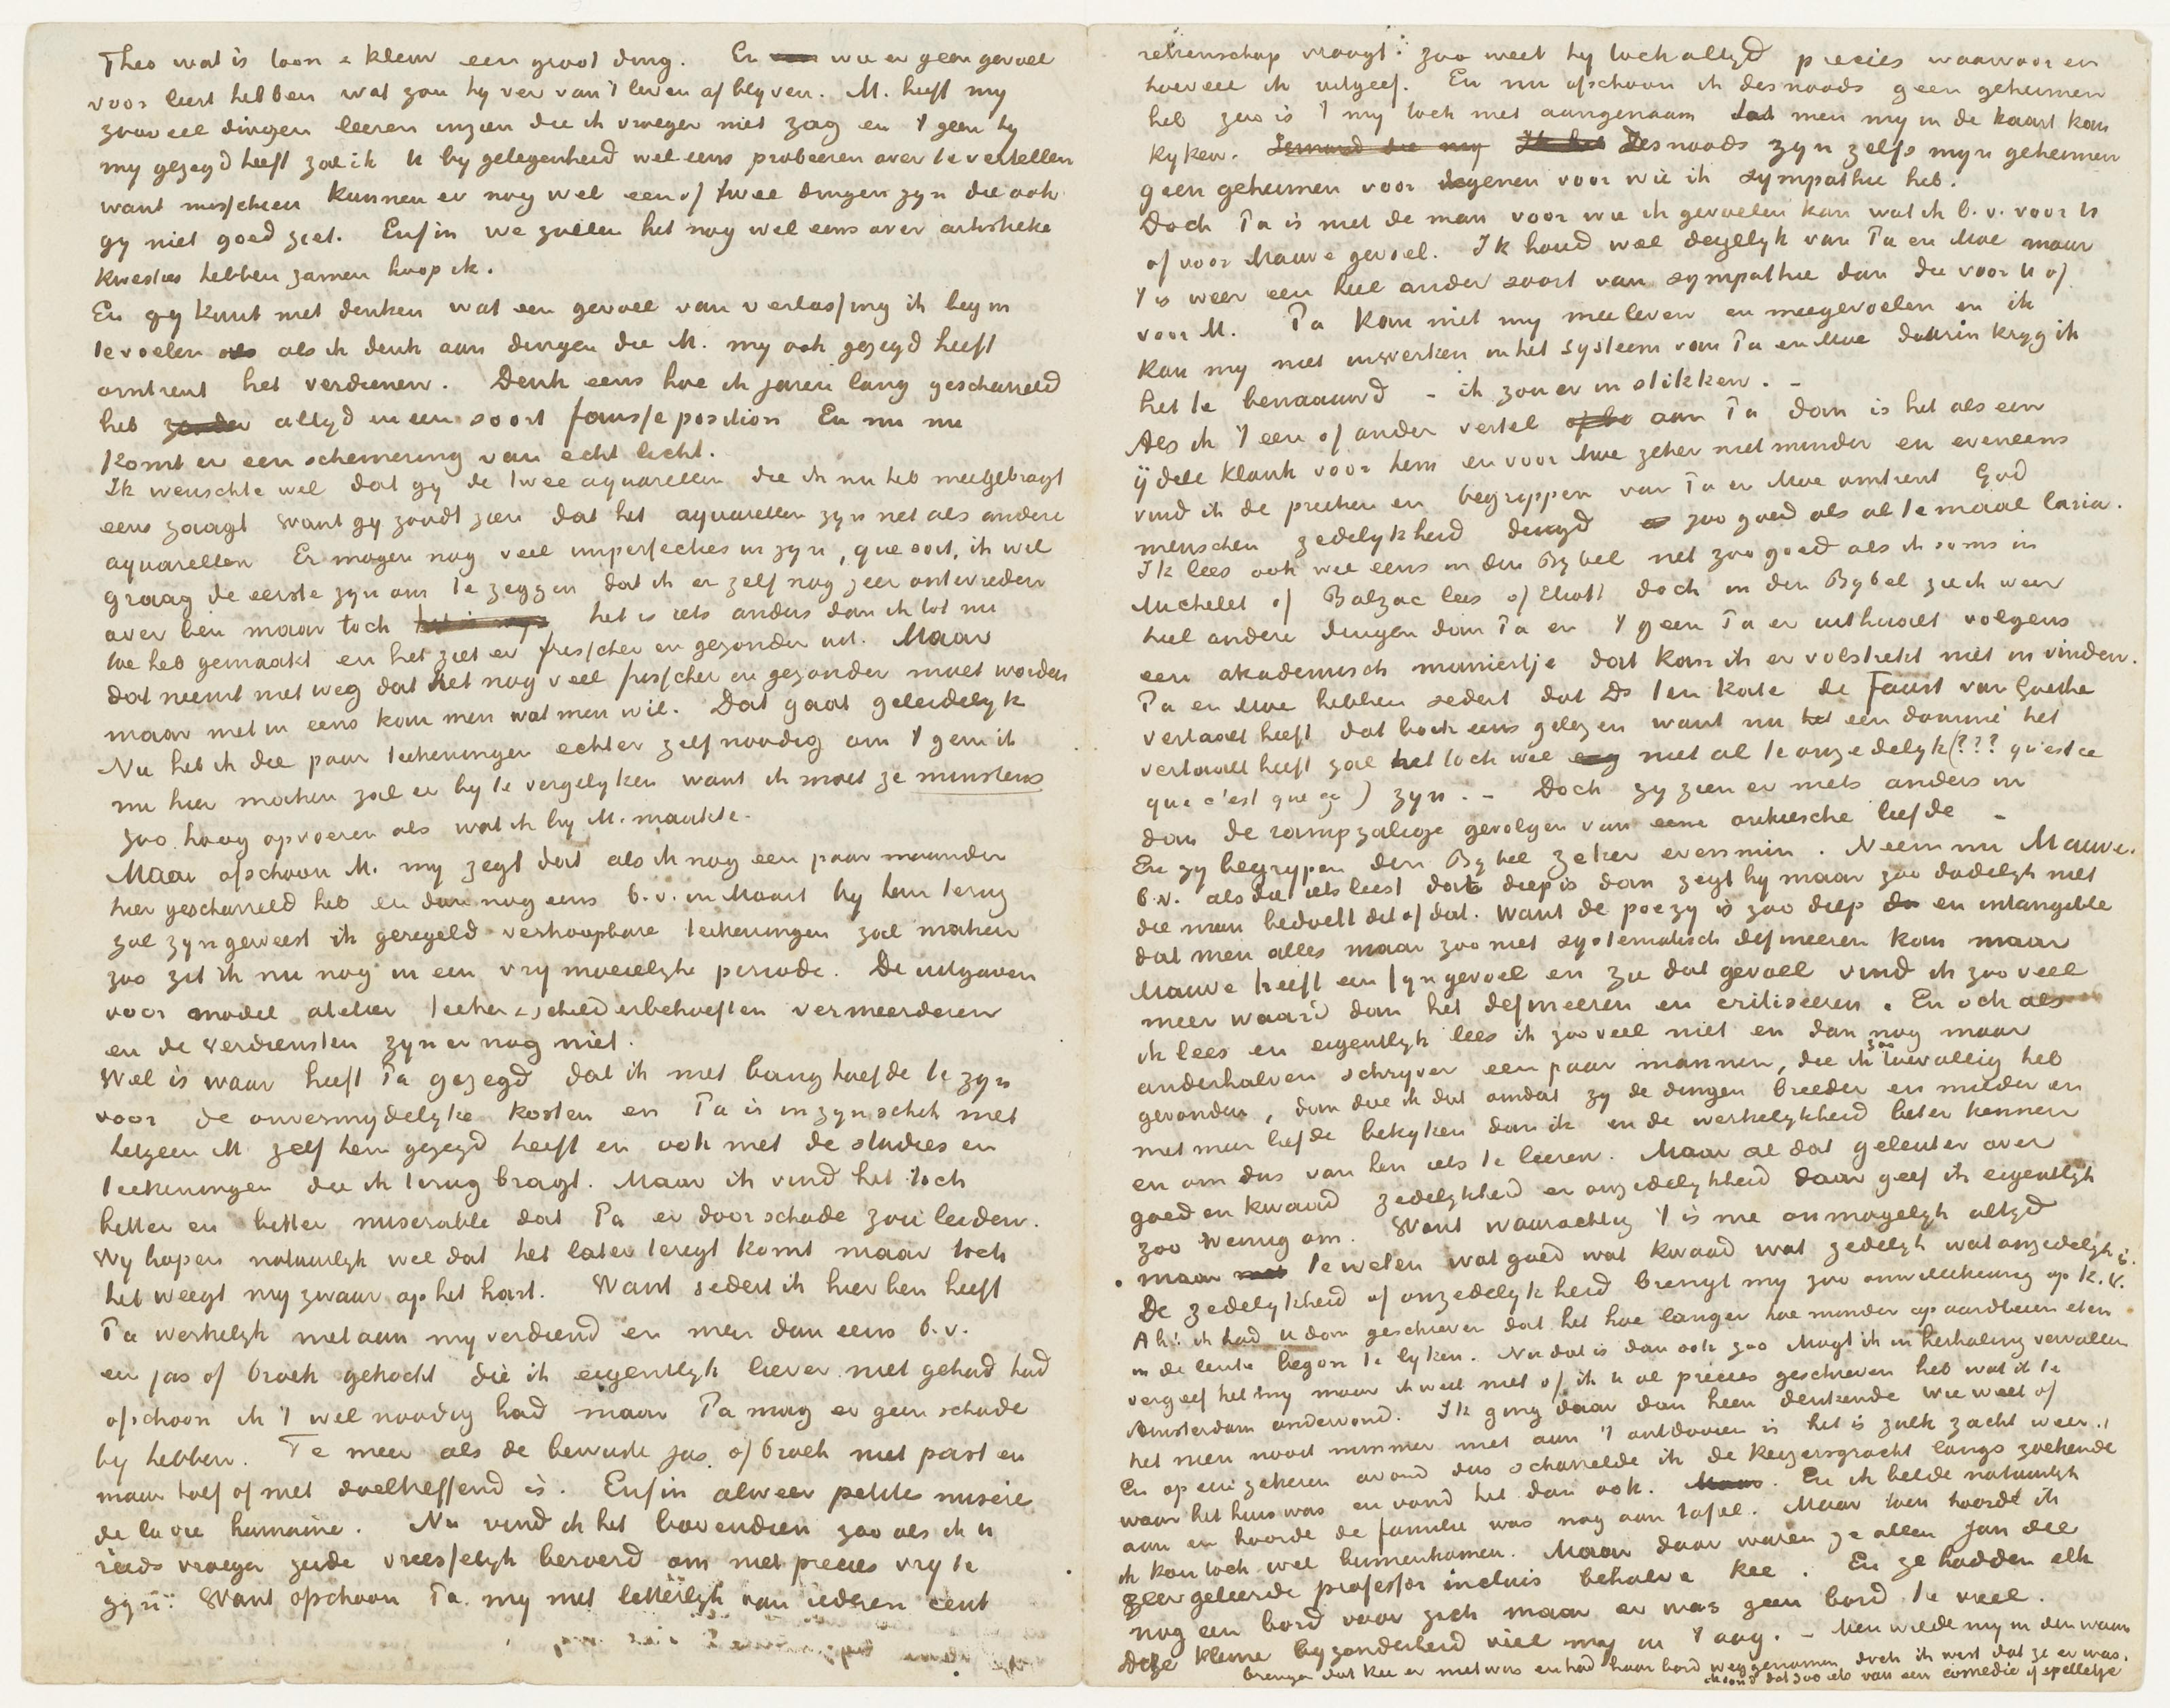 Theo wat is toon & kleur een groot ding. En wie er geen gevoel
voor leert hebben wat zou hy ver van 't leven af blyven. M. heeft my
zooveel dingen leeren inzien die ik vroeger niet zag en 't geen hy
my gezegd heeft zal ik U by gelegenheid wel eens probeeren over te vertellen
want misschien kunnen er nog wel een of twee dingen zyn die ook
gy niet goed ziet. Enfin we zullen het nog wel eens over artistieke
kwesties hebben zamen hoop ik.
En gy kunt niet denken wat een gevoel van verlossing ik begin
te voelen als ik denk aan dingen die M. my ook gezegd heeft
omtrent het verdienen. Denk eens hoe ik jaren lang gescharreld
heb altyd in een soort fausse position En nu nu
komt er een schemering van echt licht.
Ik wenschte wel dat gy de twee aquarellen die ik nu heb meegebragt
eens zaagt want gy zoudt zien dat het aquarellen zyn net als andere
aquarellen Er mogen nog veel imperfecties in zyn, que soit, ik wil
graag de eerste zyn om te zeggen dat ik er zelf nog zeer ontevreden
over ben maar toch het is iets anders dan ik tot nu
toe heb gemaakt en het ziet er frisscher en gezonder uit. Maar
dat neemt niet weg dat het nog veel frisscher en gezonder moet worden
maar niet in eens kan men wat men wil. Dat gaat geleidelyk
Nu heb ik die paar teekeningen echter zelf noodig om 't geen ik
nu hier maken zal er by te vergelyken want ik moet ze minstens
zoo hoog opvoeren als wat ik by M. maakte.
Maar ofschoon M. my zegt dat als ik nog een paar maanden
hier gescharreld heb en dan nog eens b.v. in Maart by hem terug
zal zyn geweest ik geregeld verkoopbare teekeningen zal maken
zoo zit ik nu nog in een vry moeielyke periode. De uitgaven
voor model atelier teeken & schilderbehoeften vermeerderen
en de verdiensten zyn er nog niet.
Wel is waar heeft Pa gezegd dat ik niet bang hoefde te zyn
voor de onvermydelyke kosten en Pa is in zyn schik met
hetgeen M zelf hem gezegd heeft en ook met de studies en
teekeningen die ik terug bragt. Maar ik vind het toch
bitter en bitter miserable dat Pa er door schade zou leiden.
Wy hopen natuurlyk wel dat het later teregt komt maar toch
het weegt my zwaar op het hart. Want sedert ik hier ben heeft
Pa werkelyk niet aan my verdiend en meer dan eens b.v.
een jas of broek gekocht die ik eigentlyk liever niet gehad had
ofschoon ik 't wel noodig had maar Pa mag er geen schade
by hebben. Te meer als de bewuste jas of broek niet past en
maar half of niet doeltreffend is. Enfin alweer petite misère
de la vie humaine. Nu vind ik het bovendien zoo als ik U
reeds vroeger zeide vreesselyk beroerd om niet precies vry te
zyn. Want ofschoon Pa my niet letterlyk van iederen cent
rekenschap vraagt zoo weet hy toch altyd precies waarvoor en
hoeveel ik uitgeef. En nu ofschoon ik desnoods geen geheimen
heb zoo is 't my toch niet aangenaam dat men my in de kaart kan
kyken. Desnoods zyn zelfs myn geheimen
geen geheimen voor degenen voor wie ik sympathie heb.
Doch Pa is niet de man voor wie ik gevoelen kan wat ik b.v. voor U
of voor Mauve gevoel. Ik houd wel degelyk van Pa en Moe maar
't is weer een heel ander soort van sympathie dan die voor U of
voor M. Pa kan niet my meeleven en meegevoelen en ik
kan my niet inwerken in het systeem van Pa en Moe daarin kryg ik
het te benaauwd – ik zou er in stikken. –
Als ik 't een of ander vertel aan Pa dan is het als een
ydele klank voor hem en voor Moe zeker niet minder en eveneens
vind ik de preeken en begrippen van Pa en Moe omtrent God
menschen zedelykheid deugd zoo goed als altemaal larie.
Ik lees ook wel eens in den Bybel net zoo goed als ik soms in
Michelet of Balzac lees of Eliott doch in den Bybel zie ik weer
heel andere dingen dan Pa en 't geen Pa er uithaalt volgens
een akademisch maniertje dat kan ik er volstrekt niet in vinden.
Pa en Moe hebben sedert dat Ds ten Kate de Faust van Goethe
vertaalt heeft dat boek eens gelezen want nu een dominé het
vertaald heeft zal het toch wel niet al te onzedelyk (??? qu'est ce
que c'est que ça) zyn. – Doch zy zien er niets anders in
dan de rampzalige gevolgen van eene onkiesche liefde –
En zy begrypen den Bybel zeker evenmin. Neem nu Mauve.
b.v. als die iets leest dat diep is dan zegt hy maar zoo dadelyk niet
die man bedoelt dit of dat. Want de poezy is zoo diep en intangible
dat men alles maar zoo niet systematisch definieeren kan maar
Mauve heeft een fyn gevoel en zie dat gevoel vind ik zooveel
meer waard dan het definieeren en critiseeren. En och als
ik lees en eigentlyk lees ik zooveel niet en dan nog maar
anderhalven schryver een paar mannen, die ik zoo toevallig heb
gevonden, dan doe ik dat omdat zy de dingen breeder en milder en
met meer liefde bekyken dan ik en de werkelykheid beter kennen
en om dus van hen iets te leeren. Maar al dat geleuter over
goed en kwaad zedelykheid en onzedelykheid daar geef ik eigentlyk
zoo weinig om. Want waarachtig 't is me onmogelyk altyd
maar te weten wat goed wat kwaad wat zedelyk wat onzedelyk is.
De zedelykheid of onzedelykheid brengt my zoo onwillekeurig op K.V.
Ah! ik had U dan geschreven dat het hoe langer hoe minder op aardbeien eten
in de lente begon te lyken. Nu dat is dan ook zoo Mogt ik in herhaling vervallen
vergeef het my maar ik weet niet of ik U al precies geschreven heb wat ik te
Amsterdam ondervond. Ik ging daar dan heen denkende wie weet of
het men nooit nimmer niet aan 't ontdooien is het is zulk zacht weer.
En op een zekeren avond dus scharrelde ik de Keizersgracht langs zoekende
waar het huis was en vond het dan ook. En ik belde natuurlyk
aan en hoorde de familie was nog aan tafel. Maar toen hoorde ik
ik kon toch wel binnenkomen. Maar daar waren ze allen Jan die
zeer geleerde professor incluis behalve Kee. En ze hadden elk
nog een bord voor zich maar er was geen bord te veel.
Deze kleine byzonderheid viel my in 't oog. – Men wilde my in den waan
brengen dat Kee er niet was en had haar bord weggenomen doch ik wist dat ze er was.
ik vond dat zoo iets van een comedie of spelletje